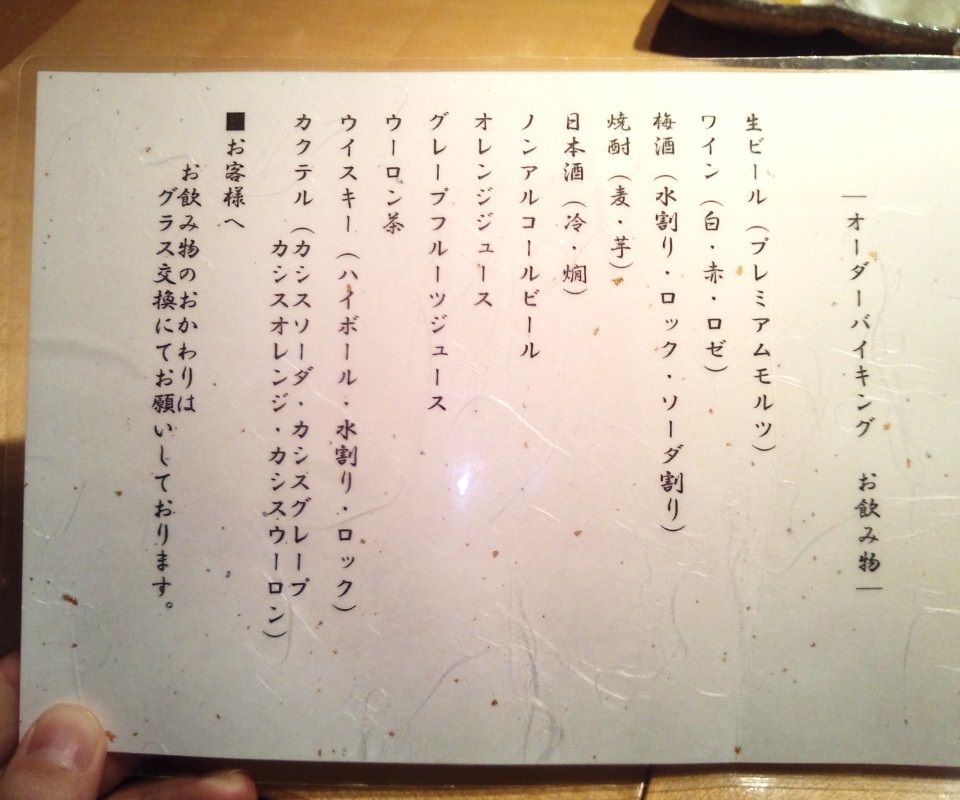 ―オーダーバイキング　お飲み物―
生ビール（プレミアムモルツ）
ワイン（白・赤・ロゼ）
梅酒（水割り・ロック・ソーダ割り）
焼酎（麦・芋）
日本酒（冷・燗）
ノンアルコールビール
オレンジジュース
グレープフルーツジュース
ウーロン茶
ウイスキー（ハイボール・水割り・ロック）
カクテル（カシスソーダ・カシスグレープ
カシスオレンジ・カシスウーロン）
■お客様へ
お飲み物のおかわりは
グラス交換にてお願いしております。